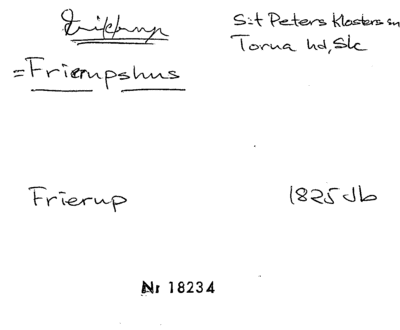 S:t Peters Klosters sn
Torna hd, Skc
=Frierupshus
Frierup 1825 Jb
Nr 18234